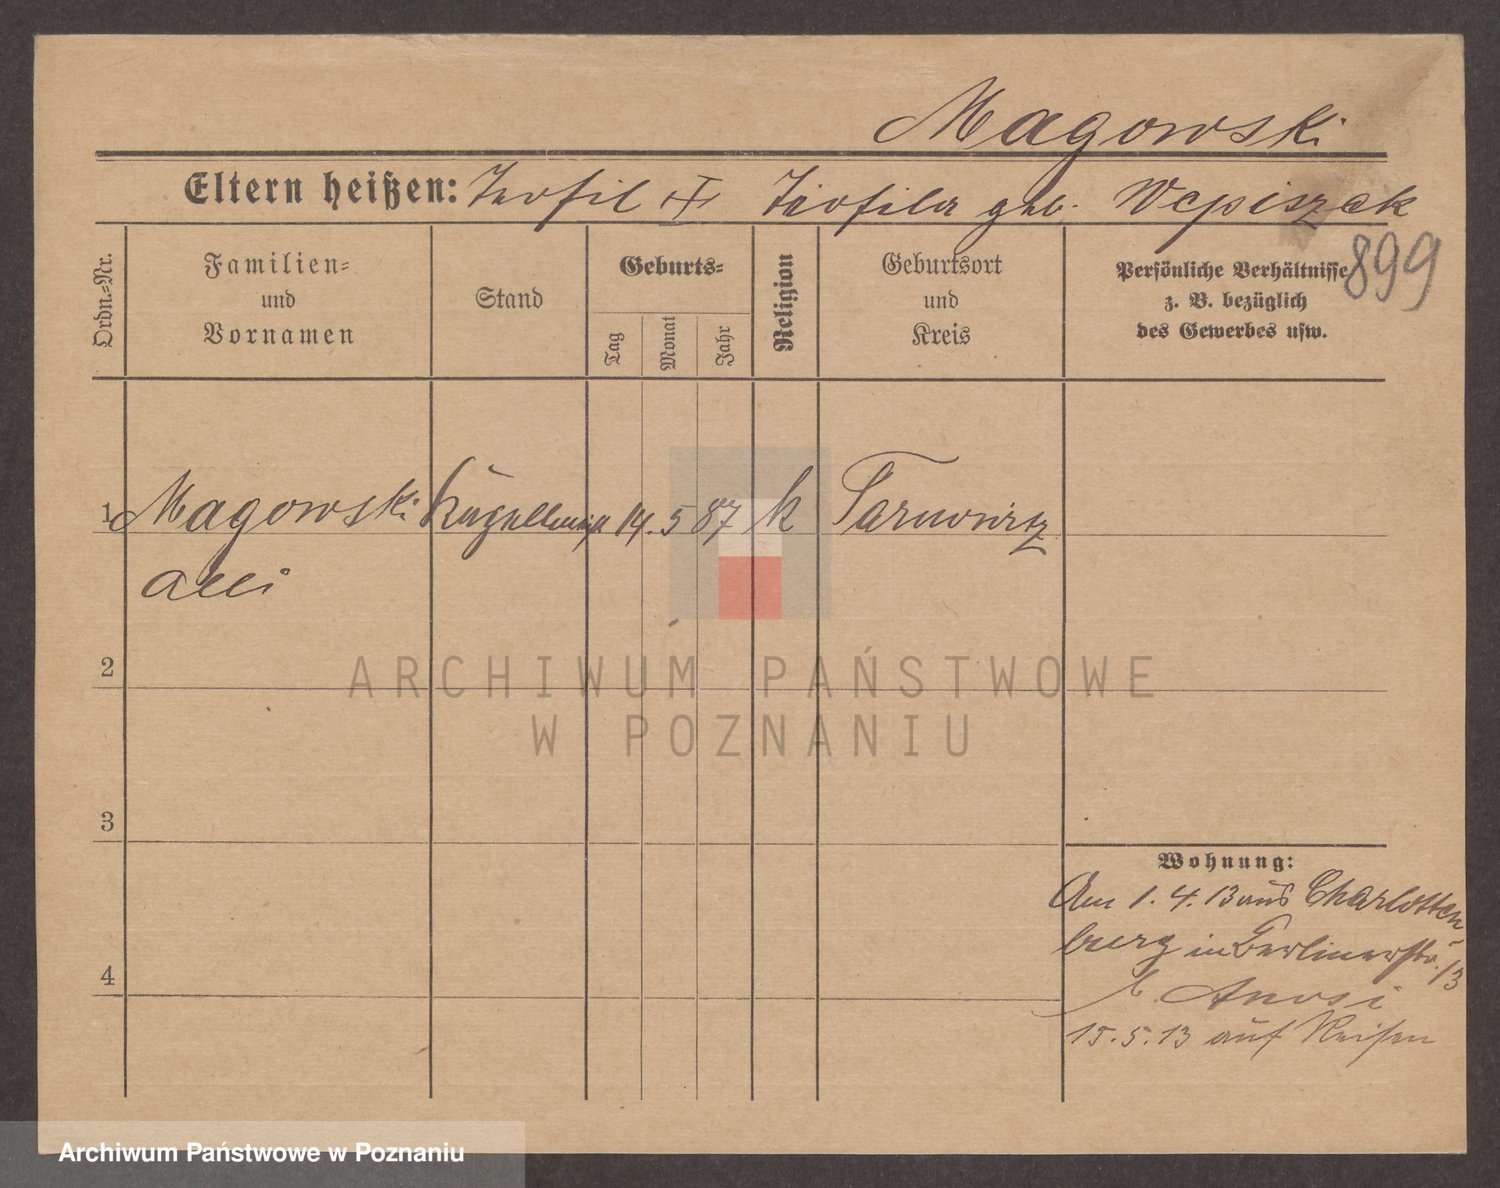 Magowski
Eltern heißen: Teofil Teofila geb. Wcpiszek
899
Ordn.=Nr.
Familien=
und
Vornamen
Stand
Geburts=
Tag
Monat
Jahr
Religion
Geburtsort
und
Kreis
Persönliche Verhältnisse
z. B. bezüglich
des Gewerbes usw.
1 Magowski 14. 5 87 k Tarnowitz
2
3
4
ARCHIWUM PAŃSTWOWE
W POZNANIU
Wohnung:
Am 1. 4. 13 aus Charlotten
burg in Berlinerstr. 13
b.
15. 5. 13 auf Reisen
Archiwum Państwowe w Poznaniu